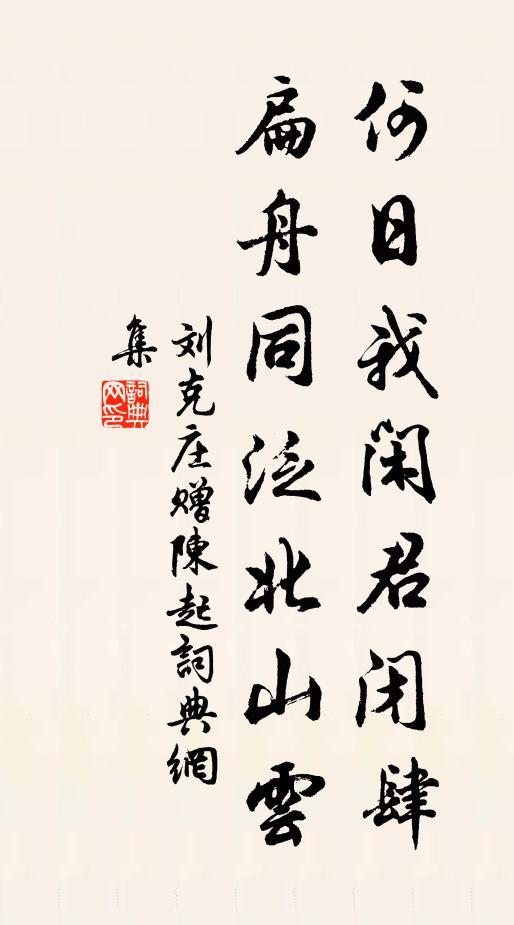 何日我閑君闭肆
扁舟同泛北山雲
刘克庄赠陳起詞典網
集
詞典网印